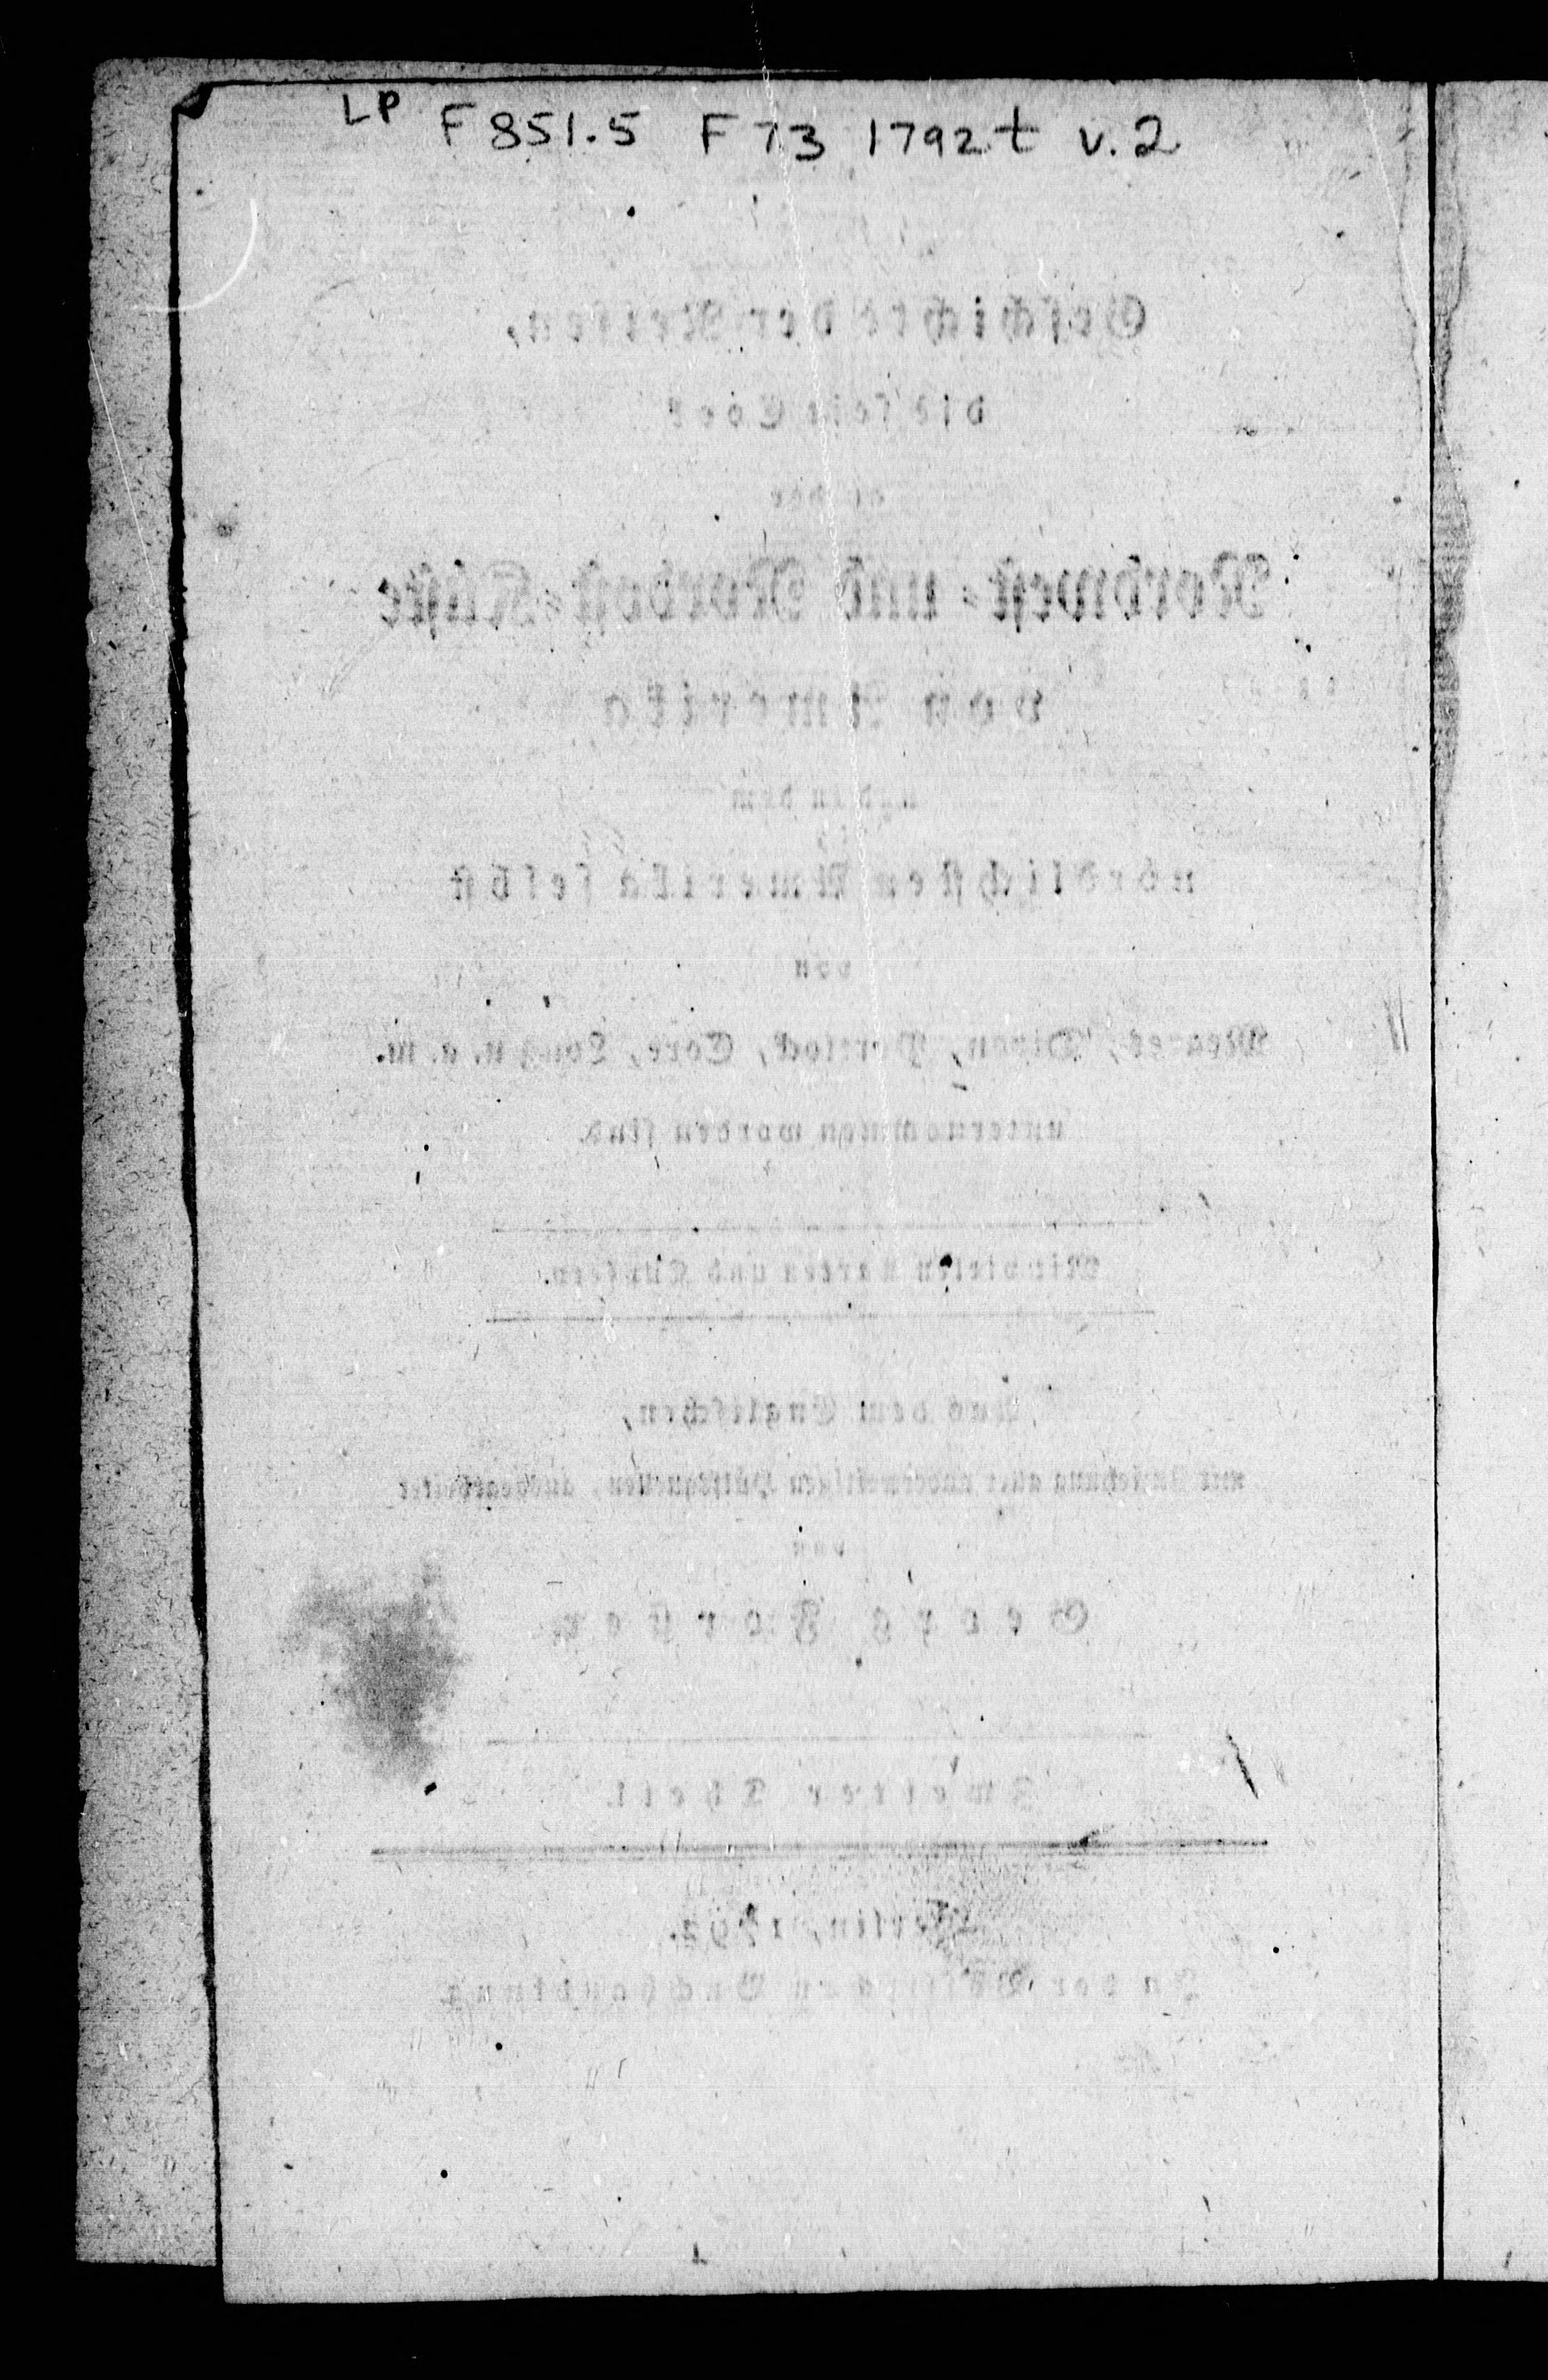 LP F851.5 F73 1792t v.2
Geschichte der Reisen,
die seit Cook
an der
Nordwest- und Nordost-Küste
von Amerika
und in dem
nördlichsten Amerika selbst
von
Meares, Dixon, Portlock, Coxe, Long u. a. m.
unternommen worden sind
Mit vielen Karten und Kupfern.
Aus dem Englischen,
mit Zuziehung aller anderweitigen Hülfsquellen, ausgearbeitet
von
Georg Forster.
Zweiter Theil.
Berlin, 1792.
In der Vossischen Buchhandlung